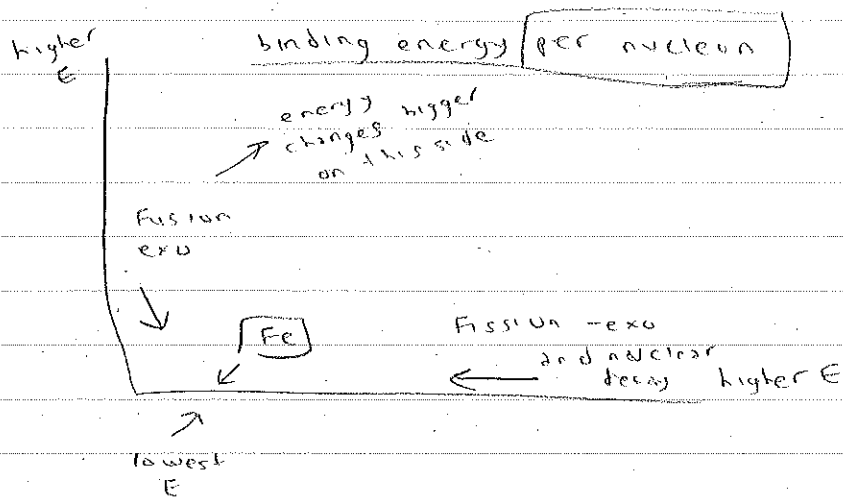 higher
E
binding energy per nucleon
energy bigger
changes
on this side
Fusion
exo
Fe
Fission - exo
and nuclear
decay
higher E
lowest
E